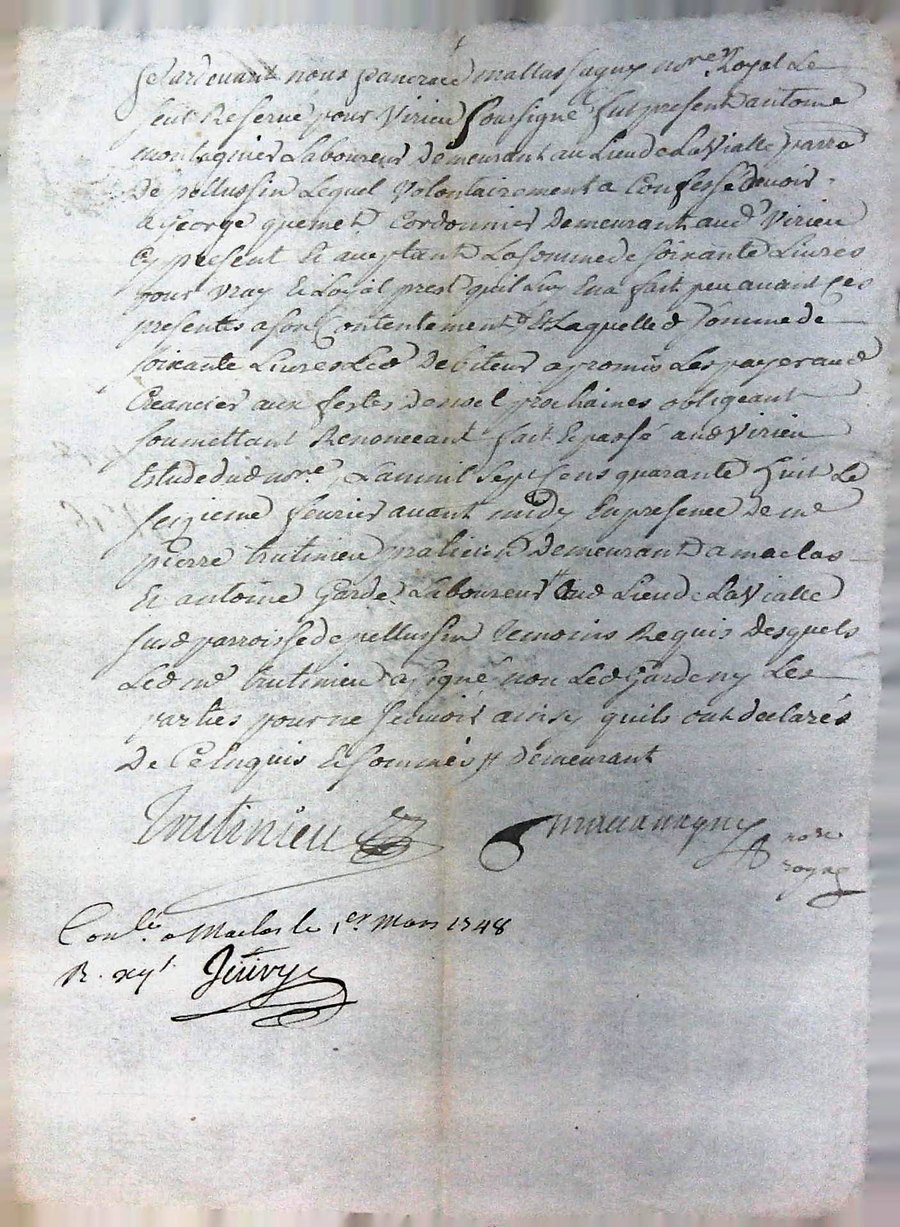 Pardevant nous pancrace mallassagny no.re Royal Le
seul Reservé pour Virieu soussigné fut present antoine
montagnier Laboureur Demeurant au Lieu de La Vialle parr.e
De pellussin Lequel Volontairement a Confessé devoir
a George quemet Cordonnier Demeurant aud Virieu
Cy present Et aceptant La somme de soixante Livres
pour vray Et Loyal prest quil Luy En a fait peu avant Ces
presentes a son Contentement Laquelled somme de
soixante Livres Led Debiteur a promis Les payer aud
Creancier aux festes de noel prochaines obligeant
soumettant Renonceant fait Et passé aud Virieu
Estude dud no.re Lan mil sept Cens quarante huit Le
seizieme fevrier avant midy En presence de me
pierre trutinieu praticien Demeurant a maclas
Et antoine Garde Laboureur aud Lieu de La Vialle
susd parroisse de pellussin temoins Requis Desquels
Led me trutinieu a signé non Led Garde ny Les
parties pour ne sçavoir ainsy quils ont declarés
De Ce Enquis Et sommés demeurant
trutinieu
no.re
royal
Con.lé a Maclas le 1.er Mars 1748
R. xy s.